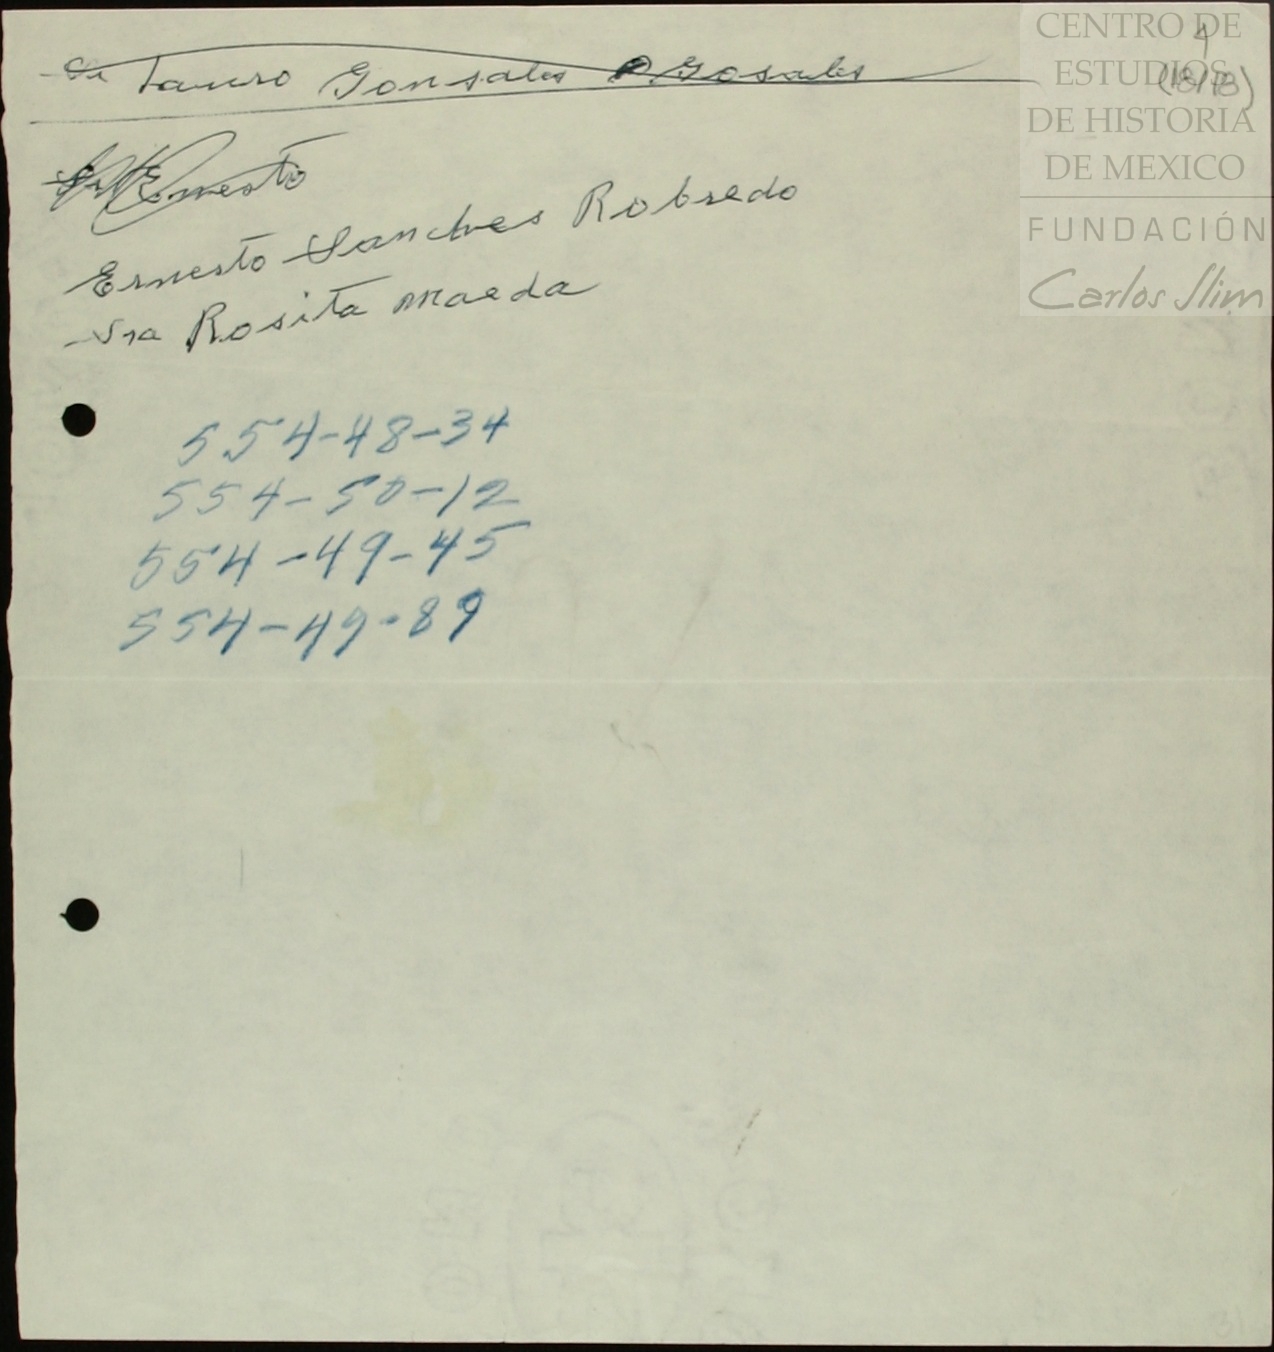 Sr Tauro Gonsales Gosales
Ernesto
Ernesto Sanches Robredo
Sra Rosita Maeda
554-48-34
554-50-12
554-49-45
554-49-89
CENTRO DE
ESTUDIOS
DE HISTORIA
DE MEXICO
FUNDACIÓN
Carlos Slim
4
(18/78)
31